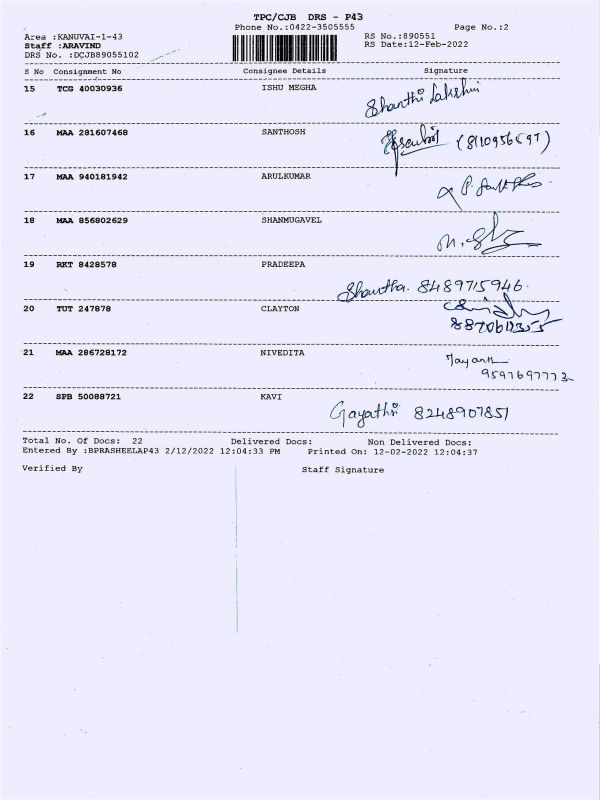 TPC/CJB DRS - P43
Phone No.:0422-3505555 Page No.:2
Area :KANUVAI-1-43 RS No.:890551
Staff :ARAVIND RS Date:12-Feb-2022
DRS No. :DCJB89055102
S No Consignment No Consignee Details Signature
15 TCG 40030936 ISHU MEGHA
Shanthi Lakshmi
16 MAA 281607468 SANTHOSH
(8110956597)
17 MAA 940181942 ARULKUMAR
18 MAA 856802629 SHANMUGAVEL
19 RKT 8428578 PRADEEPA
Shantha. 8489715946.
20 TUT 247878 CLAYTON
21 MAA 286728172 NIVEDITA
Jayanth
9597697773
22 SPB 50088721 KAVI
Gayathri 8248907851
Total No. Of Docs: 22 Delivered Docs: Non Delivered Docs:
Entered By :BPRASHEELAP43 2/12/2022 12:04:33 PM Printed On: 12-02-2022 12:04:37
Verified By Staff Signature